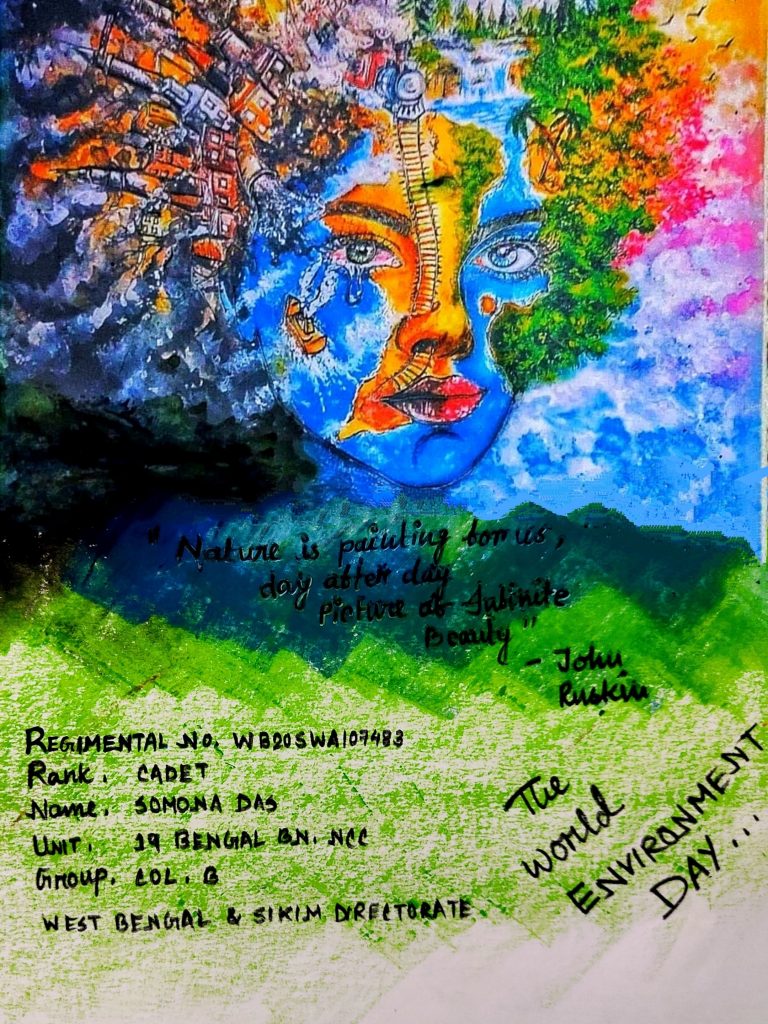 "Nature is painting for us,
day after day
Picture of Infinite
Beauty"
- John
Ruskin
REGIMENTAL NO. WB20SWA107483
Rank. CADET
Name. SOMONA DAS
UNIT. 29 BENGAL BN. NCC
Group. COL. B
WEST BENGAL & SIKIM DIRECTORATE
The
World
ENVIRONMENT
DAY...